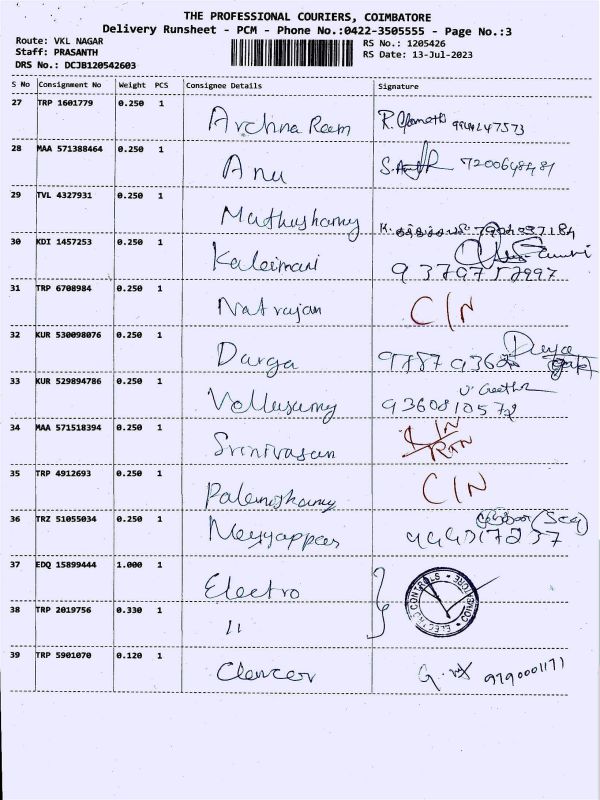 THE PROFESSIONAL COURIERS, COIMBATORE
Delivery Runsheet - PCM - Phone No.:0422-3505555 - Page No.:3
Route: VKL NAGAR
Staff: PRASANTH
DRS No.: DCJB120542603
RS No.: 1205426
RS Date: 13-Jul-2023
S No Consignment No Weight PCS Consignee Details Signature
27 TRP 1601779 0.250 1 Archna Reem
28 MAA 571388464 0.250 1 Anu 7200648481
29 TVL 4327931 0.250 1 Muthushamy
30 KDI 1457253 0.250 1 Kaleimani
31 TRP 6708984 0.250 1 Natrajan C/N
32 KUR 530098076 0.250 1 Darga
33 KUR 529894786 0.250 1 Vellusamy 9360810572
34 MAA 571518394 0.250 1 Srinivasan
35 TRP 4912693 0.250 1 Palanishamy C/N
36 TRZ 51055034 0.250 1 Meyyappan
37 EDQ 15899444 1.000 1 Electro
ELECTRO CONTROLS * COIMBATORE *
38 TRP 2019756 0.330 1 11
39 TRP 5901070 0.120 1 Clencer 9790001171